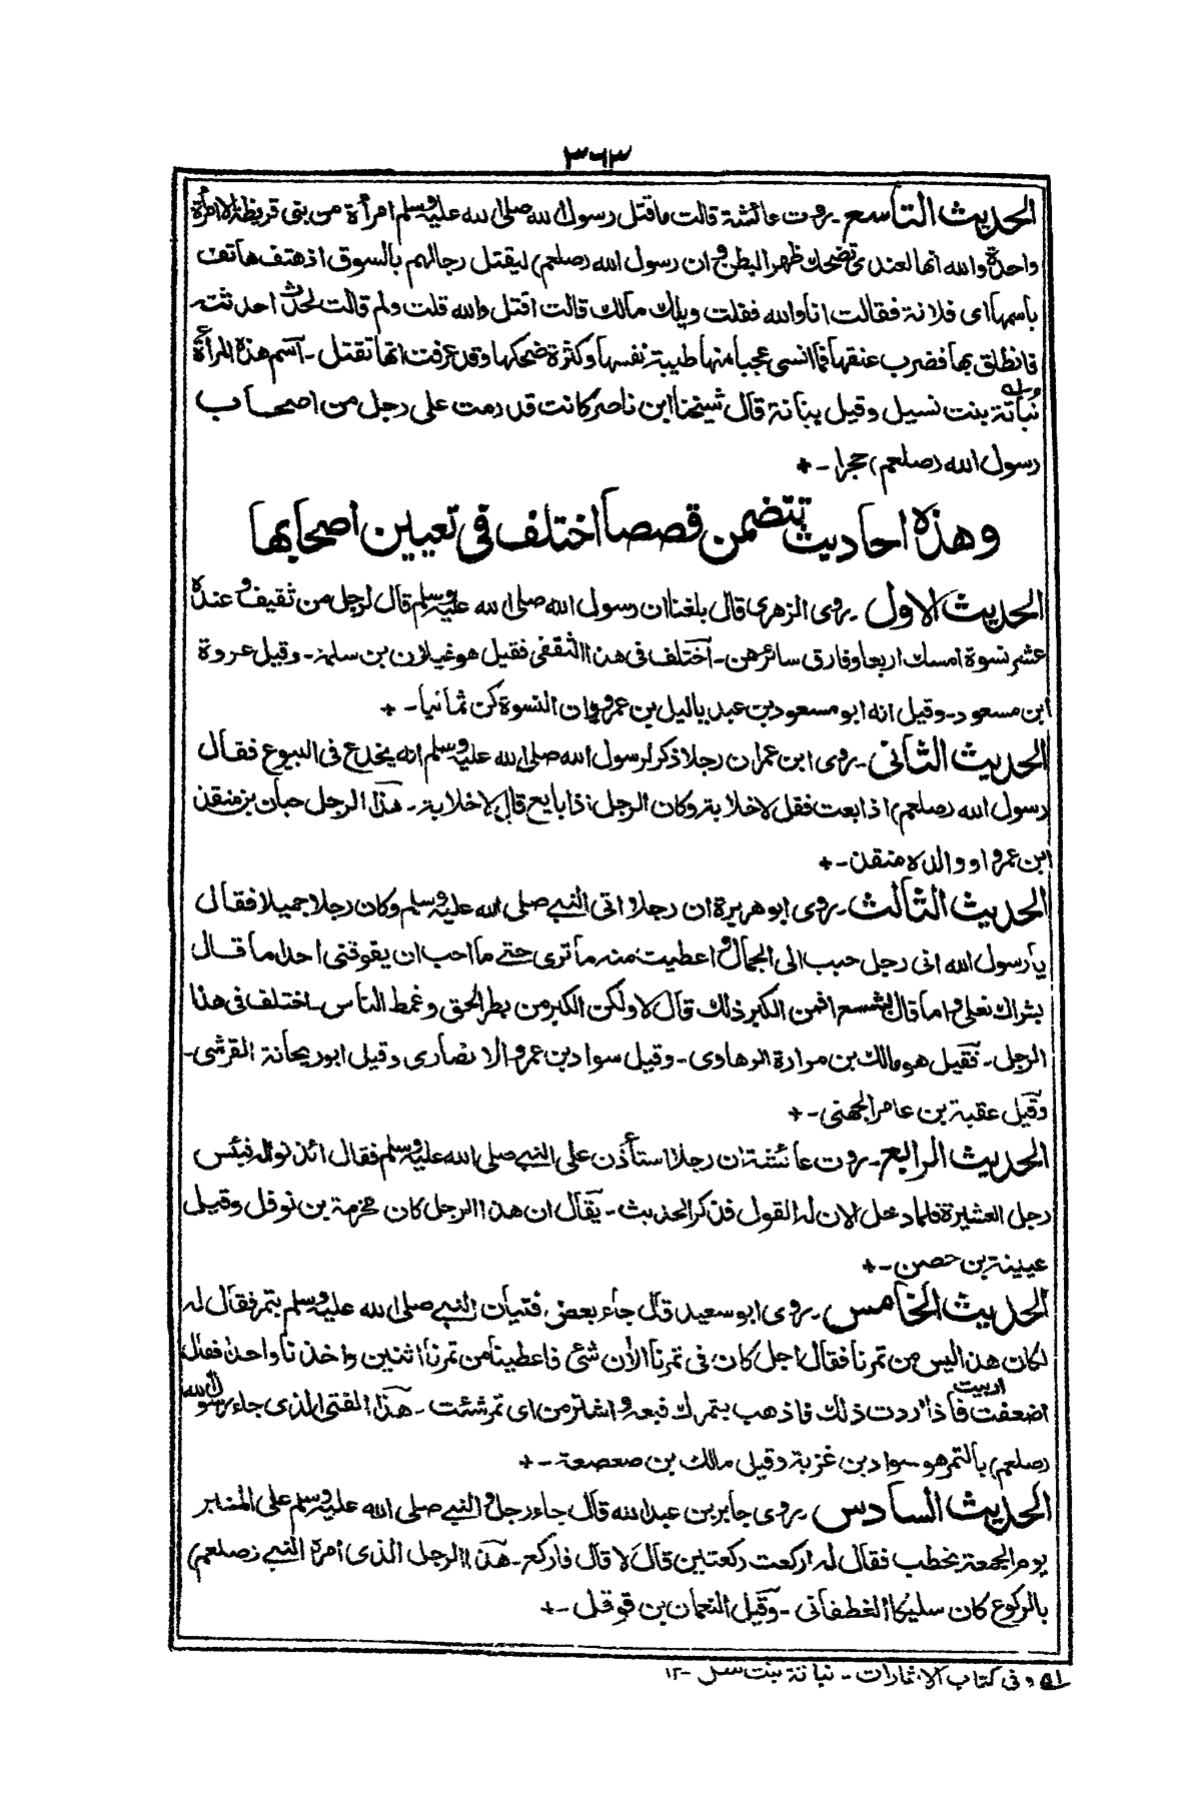 ٣٦٣
الحديث التاسع۔ روت عائشة قالت ما قتل رسول الله صلى الله عليه وسلم امرأة من بنى قريظة الا امرأة
واحدة والله انها لعندى تضحك ظهر البطن و ان رسول الله (صلعم) ليقتل رجالهم بالسوق اذ هتف هاتف
باسمها اى فلانة فقالت انا والله فقلت ويلك مالك قالت اقتل والله قلت ولم قالت لحدث احدثته
فانطلق بها فضرب عنقها فما انسى عجبا منها طيبة نفسها وكثرة ضحكها وقد عرفت انها تقتل ۔ اسم هذه المرأة
نُباتة بنت نسيل وقيل بنانة قال شيخنا ابن ناصر كانت قد رمت على رجل من اصحاب
رسول الله (صلعم) حجرا ۔ +
وهذه احاديث تتضمن قصصا اختلف فى تعيين اصحابها
الحديث الاول۔ روى الزهرى قال بلغنا ان رسول الله صلى الله عليه وسلم قال لرجل من ثقيف و عنده
عشر نسوة امسك اربعا وفارق سائرهن ۔ اختلف فى هذا الثقفى فقيل هو غيلان بن سلمة ۔ وقيل عروة
ابن مسعود ۔ وقيل انه ابو مسعود بن عبد ياليل بن عمرو وان النسوة كن ثمانيا ۔ +
الحديث الثانى۔ روى ابن عمر ان رجلا ذكر لرسول الله صلى الله عليه وسلم انه يخدع فى البيوع فقال
رسول الله (صلعم) اذا بعت فقل لا خلابة وكان الرجل اذا بايع قال لا خلابة ۔ هذا الرجل حبان بن منقذ
ابن عمرو او والده منقذ ۔ +
الحديث الثالث۔ روى ابو هريرة ان رجلا اتى النبى صلى الله عليه وسلم وكان رجلا جميلا فقال
يا رسول الله انى رجل حبب الى الجمال و اعطيت منه ما ترى حتى ما احب ان يفوقنى احد اما قال
بشراك نعلى و اما قال بشسع افمن الكبر ذلك قال لا ولكن الكبر من بطر الحق و غمط الناس ۔ اختلف فى هذا
الرجل ۔ فقيل هو مالك بن مرارة الرهاوى ۔ وقيل سواد بن عمرو الانصارى وقيل ابو ريحانة القرشى ۔
وقيل عقبة بن عامر الجهنى ۔ +
الحديث الرابع۔ روت عائشة ان رجلا استأذن على النبى صلى الله عليه وسلم فقال ائذنوا له فبئس
رجل العشيرة فلما دخل الان له القول فذكر الحديث ۔ يقال ان هذا الرجل كان مخرمة بن نوفل وقيل
عيينة بن حصن ۔ +
الحديث الخامس۔ روى ابو سعيد قال جاء بعض فتيان النبى صلى الله عليه وسلم بتمر فقال له
لكان هذا ليس من تمرنا فقال اجل كان فى تمرنا الأن شئ فاعطينا من تمرنا اثنين واخذنا واحدا فقال
اضعفت اربيت فاذا اردت ذلك فاذهب بتمرك فبعه و اشتر من اى تمر شئت ۔ هذا الفتى الذى جاء رسول الله
(صلعم) بالتمر هو سواد بن غزية وقيل مالك بن صعصعة ۔ +
الحديث السادس۔ روى جابر بن عبد الله قال جاء رجل و النبى صلى الله عليه وسلم على المنبر
يوم الجمعة يخطب فقال له اركعت ركعتين قال لا قال فاركع ۔ هذا الرجل الذى امره النبى (صلعم)
بالركوع كان سليكا الغطفانى ۔ وقيل النعمان بن قوقل ۔ +
لـه وفى كتاب الاشارات ۔ نباتة بنت سل ۔ ١٢